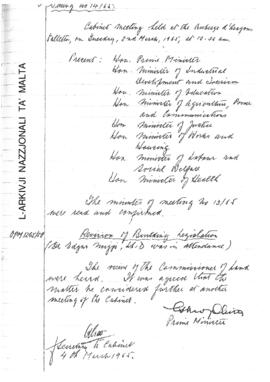 Cabinet meeting held at the Auberge d'Aragon
Valletta, on Tuesday, 2nd March, 1965, at 10.30 am
Present: Hon. Prime Minister
Hon. Minister of Industrial
Development and Tourism
Hon. Minister of Education
Hon. Minister of Agriculture, Power
and Communications
Hon. Minister of Justice
Hon. Minister of Works and
Housing
Hon. Minister of Labour and
Social Welfare
Hon. Minister of Health
The minutes of meeting No 13/65
were read and confirmed.
Revision of Building Legislation
(Dr Edgar Mizzi, LL.D was in attendance)
The views of the Commissioner of Land
were heard. It was agreed that the
matter be considered further at another
meeting of the Cabinet.
Prime Minister
Secretary to Cabinet
4th March 1965.
L-ARKIVJI NAZZJONALI TA' MALTA